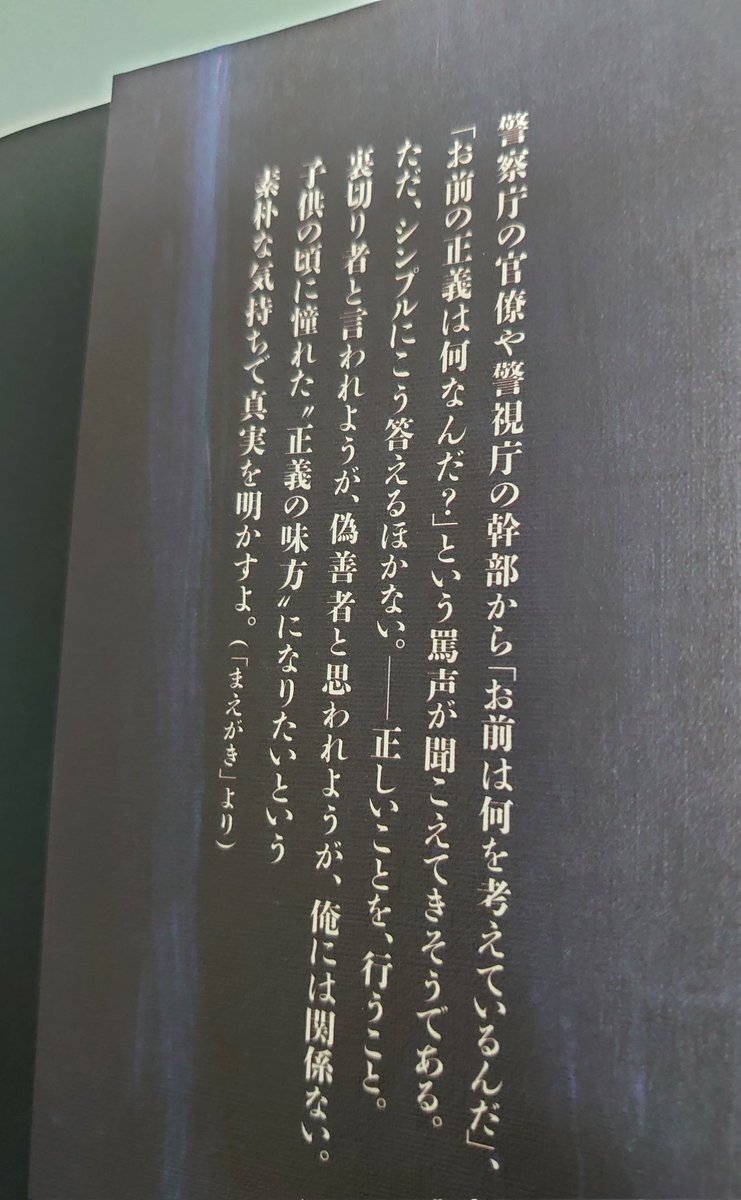 警察庁の官僚や警視庁の幹部から「お前は何を考えているんだ」、
「お前の正義は何なんだ?」という罵声が聞こえてきそうである。
ただ、シンプルにこう答えるほかない。――正しいことを、行うこと。
裏切り者と言われようが、偽善者と思われようが、俺には関係ない。
子供の頃に憧れた〝正義の味方〟になりたいという
素朴な気持ちで真実を明かすよ。(「まえがき」より)